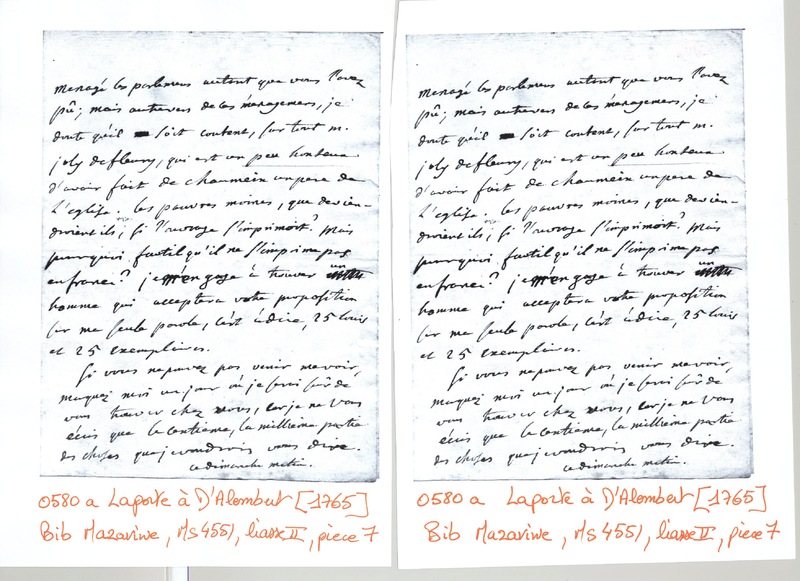 menagé les parlemens autant que vous l'avez
pû; mais autravers de les menagemens, je
doute qu'il soit content, sur tout m.
joly de fleury, qui est un peu honteux
d'avoir fait de chaumeix un pere de
l'Eglise. les pauvres moines, que devien-
droient ils, si l'ouvrage s'imprimoit? mais
pourquoi faut il qu'il ne s'imprime pas
en france? je m'engage à trouver un
homme qui acceptera votre proposition
sur ma seule parole, c'est à dire, 25 louis
et 25 exemplaires.
Si vous ne pavez pas venir me voir,
marquez moi un jour où je serai sûr de
vous trouver chez vous, car je ne vous
écris que la centieme, la millieme partie
des choses que je voudrois vous dire.
ce dimanche matin.
0580 a Laporte à D'Alembert [1765]
Bib Mazarine, Ms 4551, liasse II, piece 7
menagé les parlemens autant que vous l'avez
pû; mais autravers de les menagemens, je
doute qu'il soit content, sur tout m.
joly de fleury, qui est un peu honteux
d'avoir fait de chaumeix un pere de
l'Eglise. les pauvres moines, que devien-
droient ils, si l'ouvrage s'imprimoit? mais
pourquoi faut il qu'il ne s'imprime pas
en france? je m'engage à trouver un
homme qui acceptera votre proposition
sur ma seule parole, c'est à dire, 25 louis
et 25 exemplaires.
Si vous ne pavez pas venir me voir,
marquez moi un jour où je serai sûr de
vous trouver chez vous, car je ne vous
écris que la centieme, la millieme partie
des choses que je voudrois vous dire.
ce dimanche matin.
0580 a Laporte à D'Alembert [1765]
Bib Mazarine, Ms 4551, liasse II, piece 7